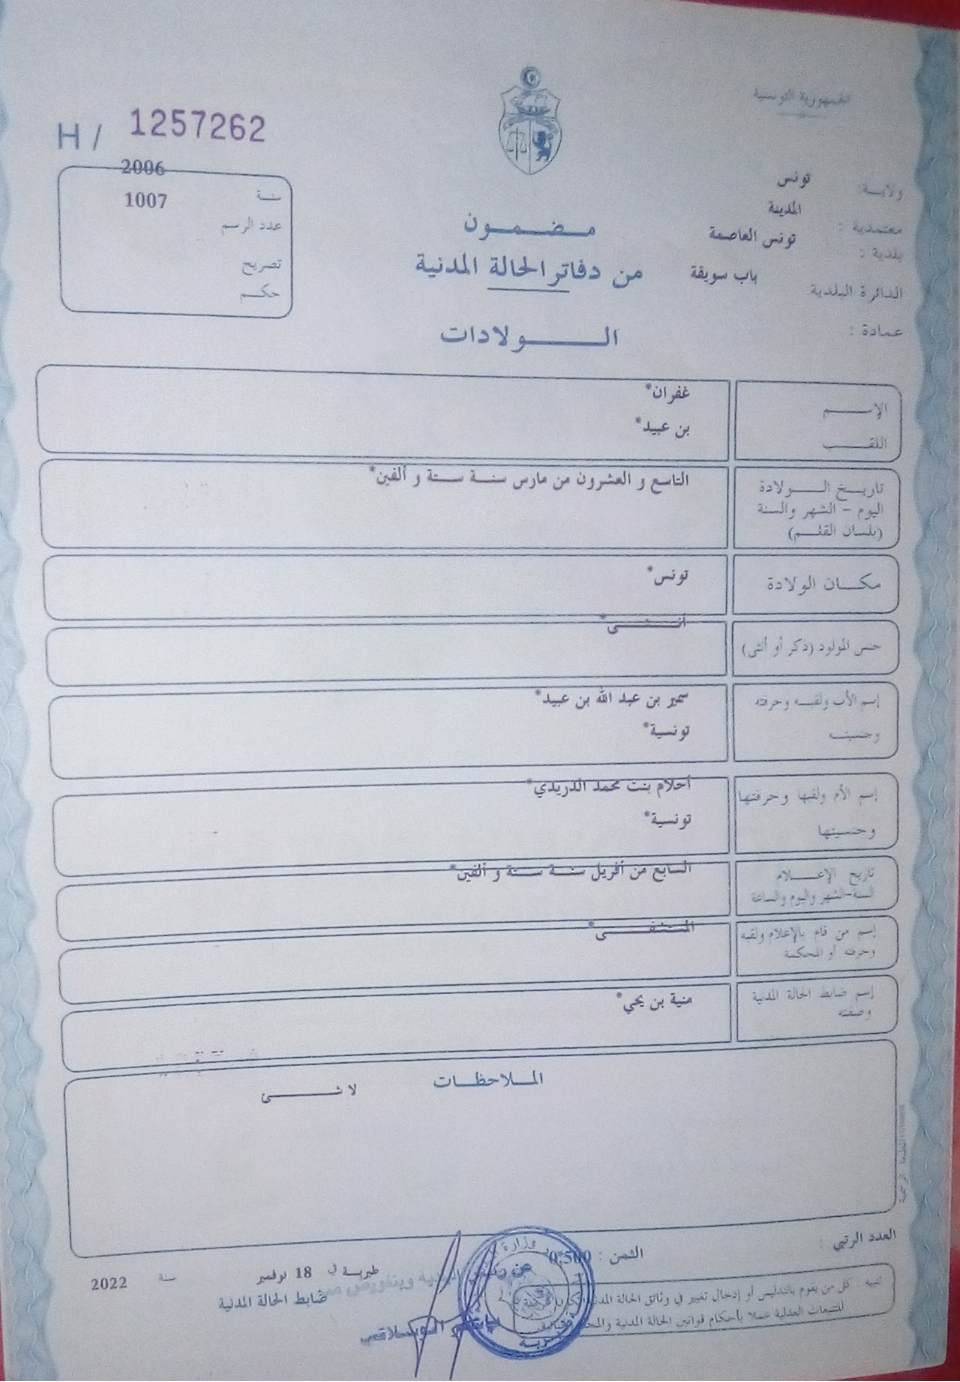 الجمهورية التونسية
H / 1257262
ولاية: تونس
معتمدية : المدينة
بلدية : تونس العاصمة
الدائرة البلدية باب سويقة
عمادة :
سنة 2006
عدد الرسم 1007
تصريح
حكم
مضمون
من دفاتر الحالة المدنية
الولادات
الإسم غفران*
اللقب بن عبيد*
تاريخ الولادة التاسع و العشرون من مارس سنة ستة و ألفين*
اليوم - الشهر والسنة
(بلسان القلم)
مكان الولادة تونس*
جنس المولود (ذكر أو أنثى) أنثى*
إسم الأب ولقبه وحرفته سمير بن عبد الله بن عبيد*
وجنسيته تونسية*
إسم الأم ولقبها وحرفتها أحلام بنت محمد الدريدي*
وجنسيتها تونسية*
تاريخ الإعلام السابع من أفريل سنة ستة و ألفين*
السنة-الشهر واليوم والساعة
إسم من قام بالإعلام ولقبه المستشفى*
وحرفته أو المحكمة
إسم ضابط الحالة المدنية منية بن يحي*
وصفته
الملاحظات
لا شئ
العدد الرتبي :
الثمن : 0,500
في 18 نوفمبر سنة 2022
ضابط الحالة المدنية
تنبيه كل من يقوم بالتدليس أو إدخال تغيير في وثائق الحالة المدنية
للتتبعات العدلية عملا بأحكام قوانين الحالة المدنية
وزارة